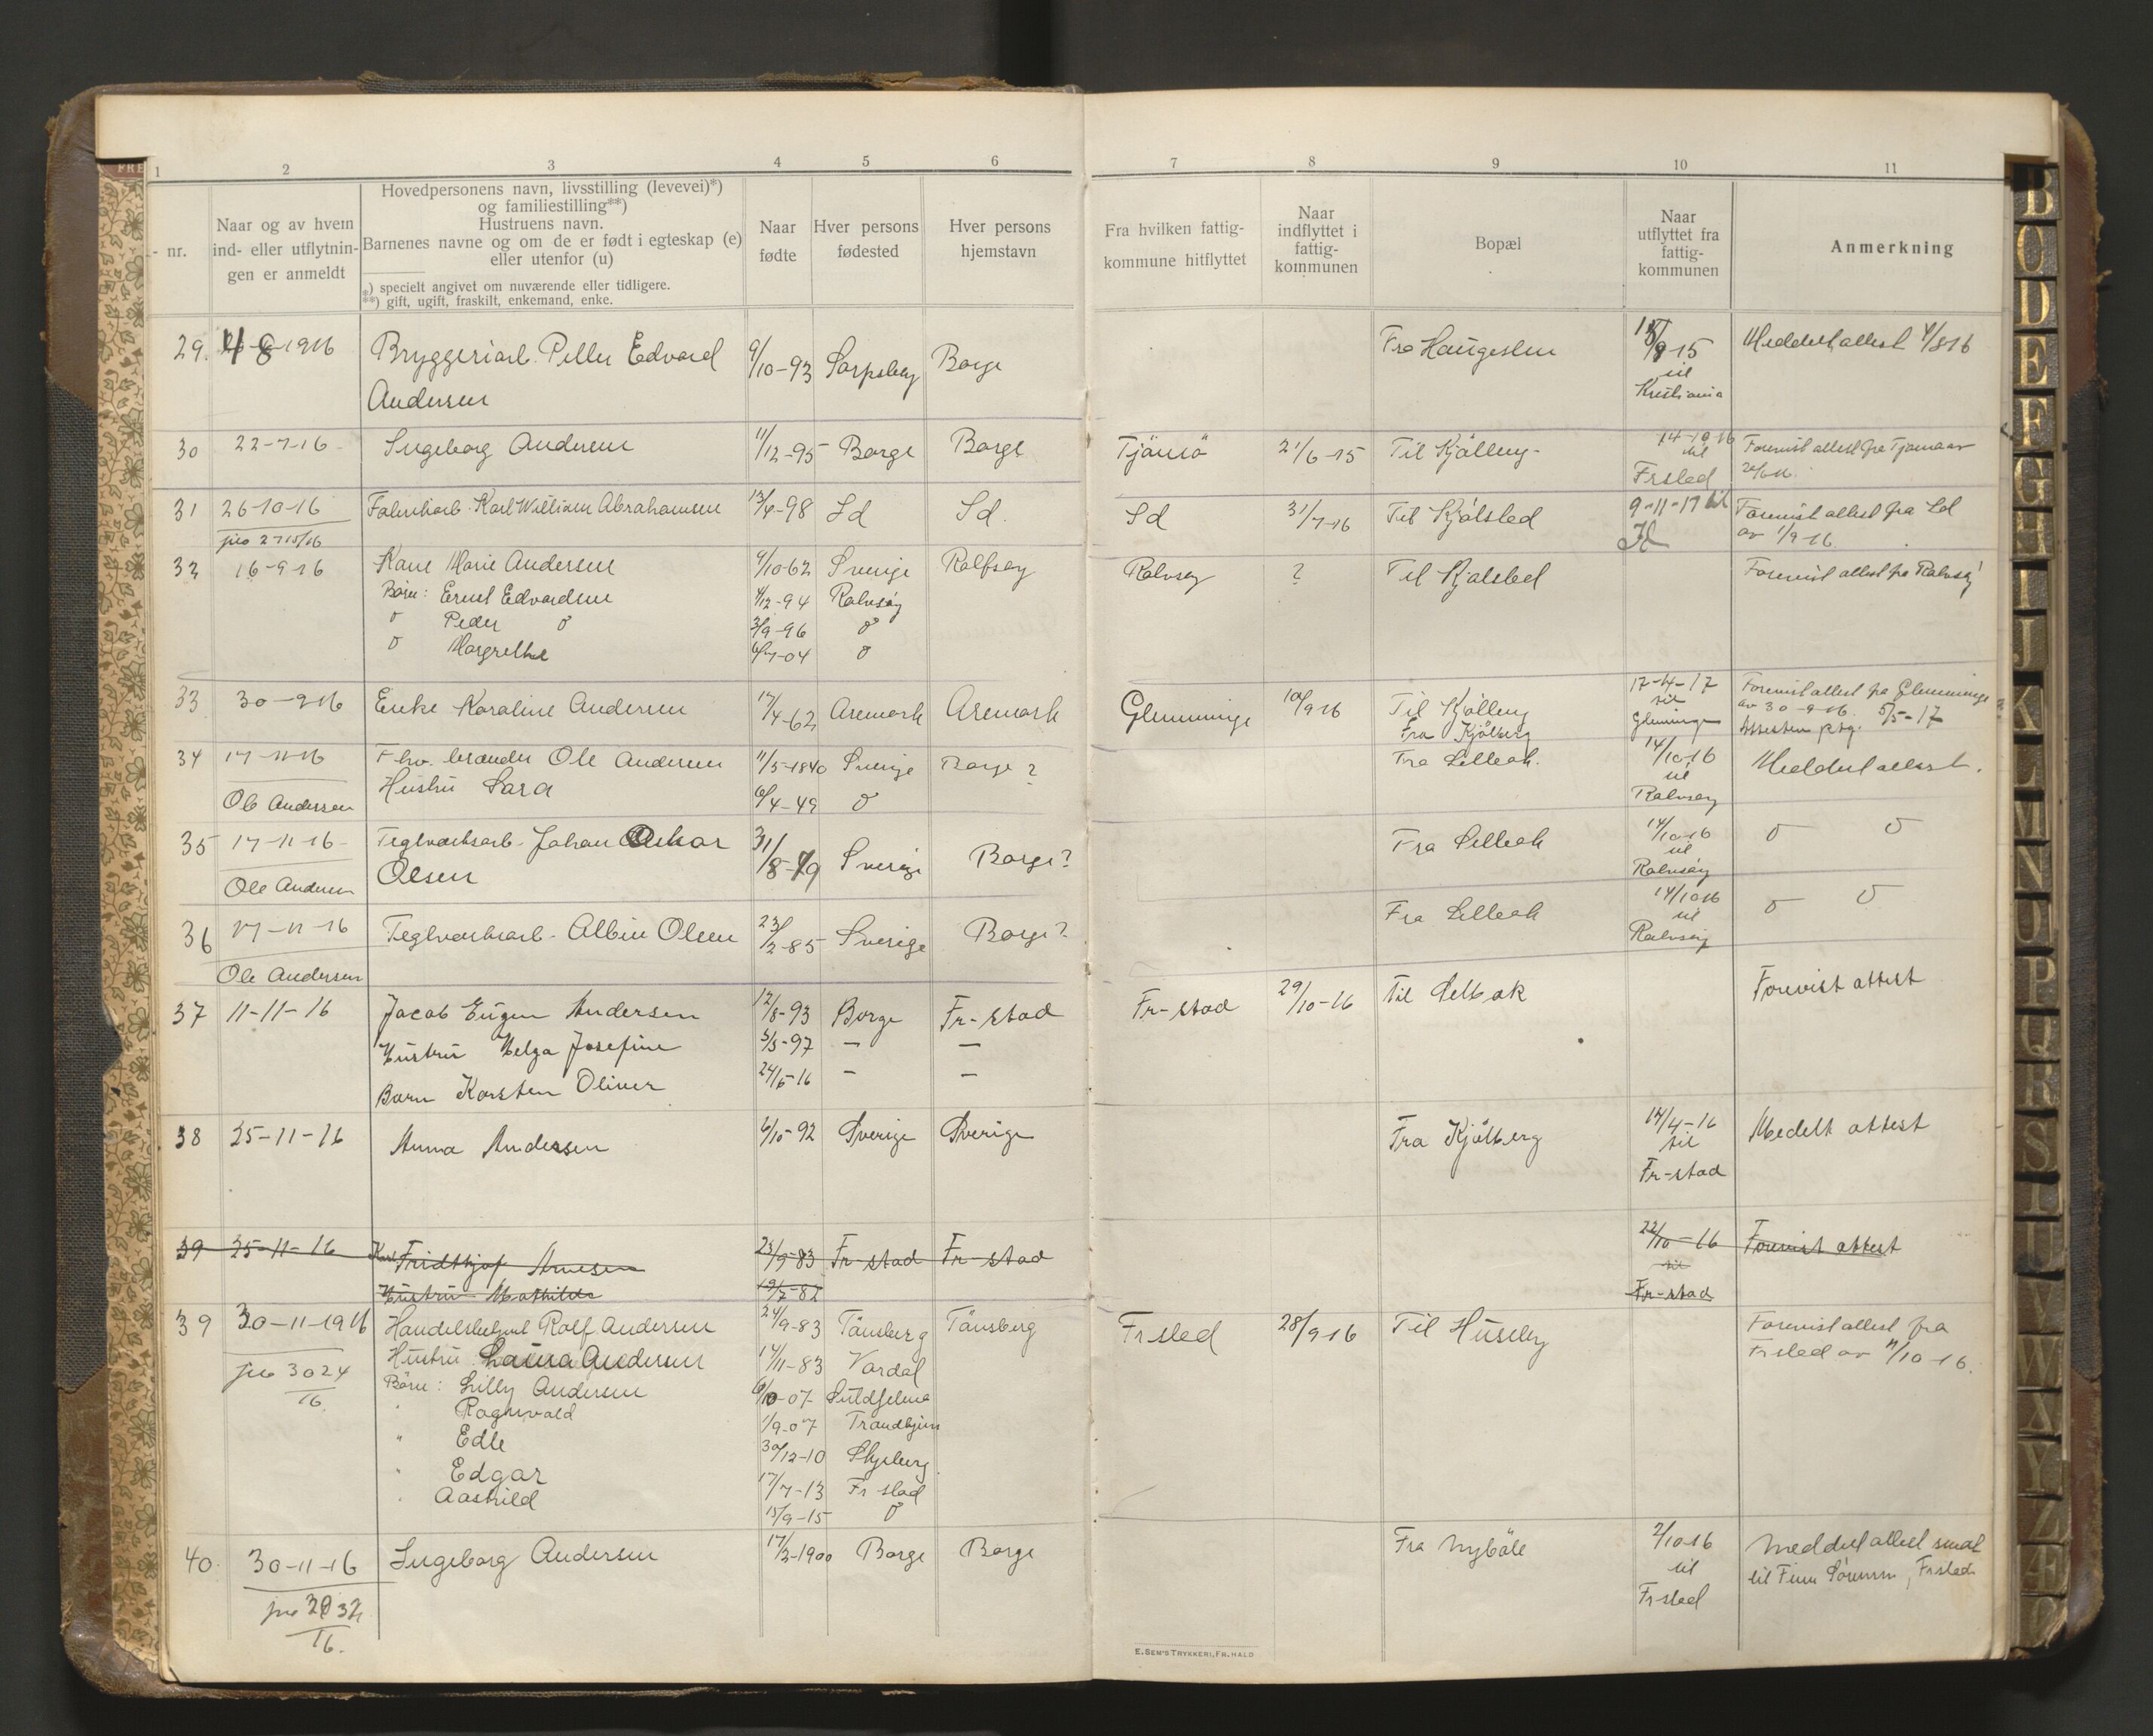 FRE
1 2 3 4 5 6 7 8 9 10 11
- nr.
Naar og av hvem
ind- eller utflytnin-
gen er anmeldt
Hovedpersonens navn, livsstilling (levevei)*)
og familiestilling**)
Hustruens navn.
Barnenes navne og om de er født i egteskap (e)
eller utenfor (u)
*) specielt angivet om nuværende eller tidligere.
**) gift, ugift, fraskilt, enkemand, enke.
Naar
fødte
Hver persons
fødested
Hver persons
hjemstavn
Fra hvilken fattig-
kommune hitflyttet
Naar
indflyttet i
fattig-
kommunen
Bopæl
Naar
utflyttet fra
fattig-
kommunen
Anmerkning
29. 4-8-1916 Bryggeriarb. Petter Edvard 9/10-93 Sarpsborg Borge Fra Haugesten /9-15 Meddelt attest 4/8 16
Andersen til
Kristiania
30 22-7-16 Ingeborg Andersen 11/12-95 Borge Borge Tjömö 21/6-15 Til Kjölberg 14-10-16 Forevist attest fra Tjömö av
til
Frstad
31 26-10-16 Fabrikarb. Karl William Abrahamsen 13/4-98 Id Id Id 31/7-16 Til Kjölstad 9-11-17 til Forevist attest fra Id
jno 2715/16 Id av 1/9-16
32 16-9-16 Karen Marie Andersen 4/10-62 Sverige Rolfsøy Rolvsøy ? Til Kjølstad Forevist attest fra Rolvsøy
Börn: Ernst Edvardsen 4/12-94 Rolvsøy
Peder 3/9-96
Margrethe 6/7-04
33 30-9-16 Enke Karoline Andersen 17/4-62 Aremark Aremark Glemminge 10/9 16 Til Kjölberg 17-4-17 Forevist attest fra Glemminge
Fra Kjölberg til av 30-9-16. 5/5-17
Glemminge Attesten
34 17-11-16 Fhv. Ole Andersen 11/5-1840 Sverige Borge ? Fra Lilleak. 14/10-16 Meddelt attest.
Ole Andersen Hustru Sara 6/4-49 til
Rolvsøy
35 17-11-16 Teglverksarb. Johan Oskar 31/8-79 Sverige Borge? Fra Lilleak 14/10-16
Ole Andersen Olsen til
Rolvsøy
36 17-11-16 Teglverksarb. Albin Olsen 23/2-85 Sverige Borge? Fra Lilleak 14/10 16
Ole Andersen til
Rolvsøy
37 11-11-16 Jacob Eugen Andersen 12/8-93 Borge Fr-stad Fr-stad 29/10-16 Til Selbak Forevist attest
Hustru Helga Josefine 5/5-97 — —
Barn Karsten Oliver 24/5-16 — —
38 25-11-16 Anna Andersen 6/10-92 Sverige Sverige Fra Kjölberg 14/4-16 Medelt attest
til
Fr-stad
39 25-11-16 Karl Fridthjof Arnesen 23/9-83 Fr-stad Fr-stad 22/10-16 Forevist attest
Hustru Mathilde 19/7-82 til
Fr-stad
39 30-11-1916 Handelsbetjent Rolf Andersen 24/9-83 Tönsberg Tönsberg Frstad 28/9-16 Til Huseby Forevist attest fra
jno 3024/16. Hustru Laura Andersen 14/11-83 Vardal Frstad av 11/10-16.
Börn: Lilly Andersen 6/10-07 Suldfelma
" Ragnvald 1/9-07 Trondhjem
" Edle 30/12-10 Skjeberg
" Edgar 17/7-13 Fr stad
Aashild 15/9-15
40. 30-11-16 Ingeborg Andersen 17/3-1900 Borge Borge Fra Nyböle 2/10 16 Meddelt attest sendt
jno 3032/16. til til Finn Sörensen, Frstad
Frstad
E. SEM'S TRYKKERI, FR.HALD
B C D E F G H I J K L M N O P Q R S T U V W X Y Z Æ Ø